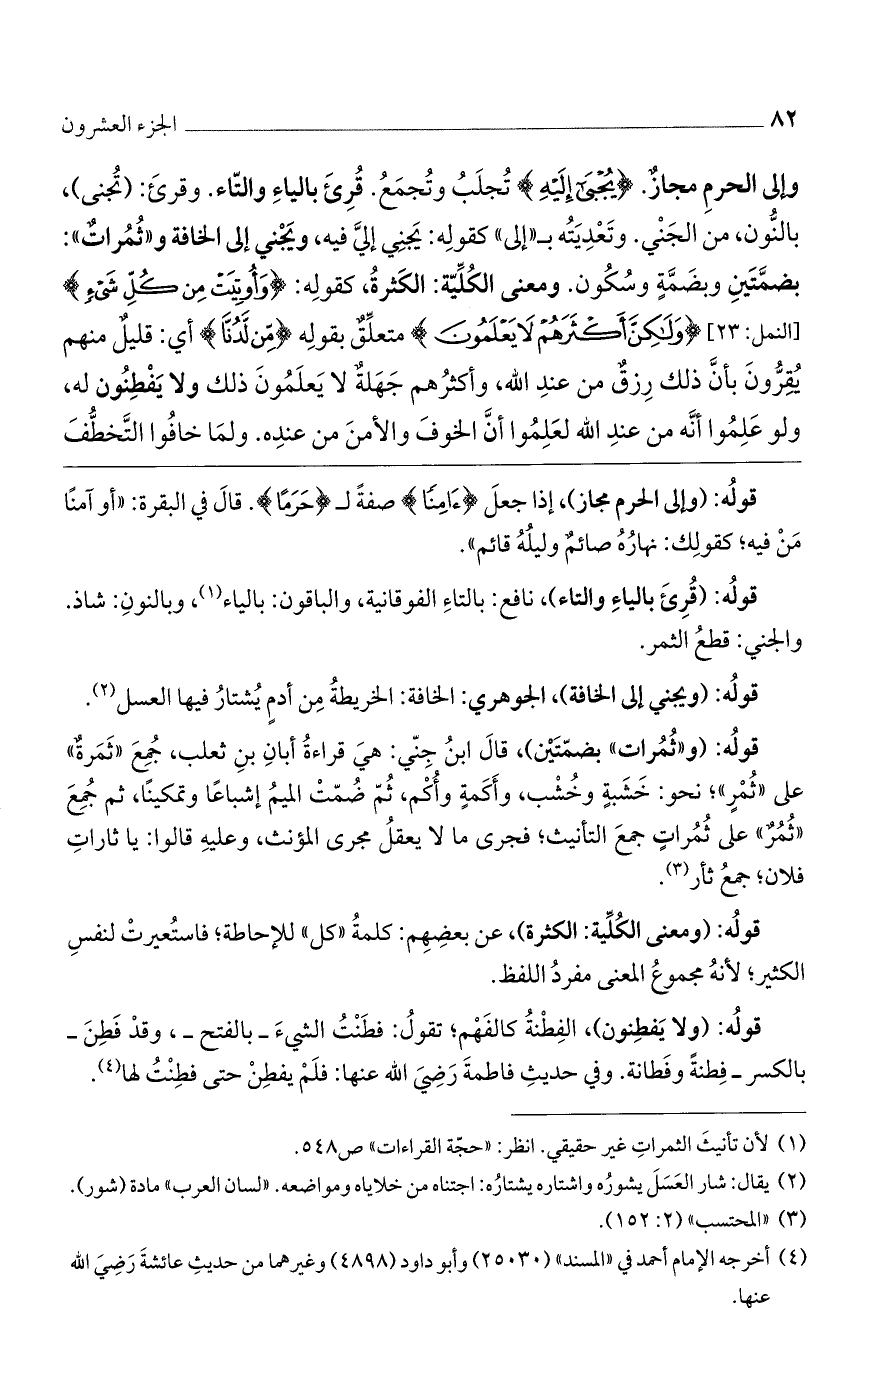 ٨٢ ــــــــــــــــــــــــــــــــــــــــ الجزء العشرون
وإلى الحرمِ مجازٌ. ﴿يُجْبَىٰٓ إِلَيْهِ﴾ تُجلَبُ وتُجمَعُ. قُرِئَ بالياءِ والتّاء. وقرئَ: (تُجنى)،
بالنُّون، من الجَنْي. وتَعْدِيَتُه بـ«إلى» كقولِه: يَجنِي إليَّ فيه، ويَجْني إلى الخافة و«ثُمُراتٌ»:
بضمَّتَينِ وبضَمَّةٍ وسُكُون. ومعنى الكُلِّيّة: الكَثرةُ، كقولِه: ﴿وَأُوتِيَتْ مِن كُلِّ شَىْءٍ﴾
[النمل: ٢٣] ﴿وَلَٰكِنَّ أَكْثَرَهُمْ لَا يَعْلَمُونَ﴾ متعلِّقٌ بقولِه ﴿مِّن لَّدُنَّا﴾ أي: قليلٌ منهم
يُقِرُّونَ بأنَّ ذلك رِزقٌ من عندِ الله، وأكثرُهم جَهَلةٌ لا يَعلَمُونَ ذلك ولا يَفْطِنُون له،
ولو عَلِمُوا أنَّه من عندِ الله لعَلِمُوا أنَّ الخوفَ والأمنَ من عندِه. ولمَا خافُوا التَّخطُّفَ
قولُه: (وإلى الحرم مجاز)، إذا جعلَ ﴿ءَامِنًا﴾ صفةً لـ ﴿حَرَمًا﴾. قالَ في البقرة: «أو آمنًا
مَنْ فيه؛ كقولِك: نهارُهُ صائمٌ وليلُهُ قائم».
قولُه: (قُرِئَ بالياءِ والتاء)، نافع: بالتاءِ الفوقانية، والباقون: بالياء(١)، وبالنونِ: شاذ.
والجني: قطعُ الثمر.
قولُه: (ويجني إلى الخافة)، الجوهري: الخافة: الخريطةُ مِن أدمٍ يُشتارُ فيها العسل(٢).
قولُه: (و«ثُمُرات» بضمّتَيْن)، قالَ ابنُ جِنّي: هيَ قراءةُ أبانِ بنِ ثعلب، جُمِعَ «ثَمَرةٌ»
على «ثُمْرٍ»؛ نحو: خَشَبةٍ وخُشْب، وأَكَمةٍ وأُكْم، ثُمّ ضُمّتْ الميمُ إشباعًا وتمكينًا، ثم جُمِعَ
«ثُمُرٌ» على ثُمُراتٍ جمعَ التأنيث؛ فجرى ما لا يعقلُ مجرى المؤنث، وعليهِ قالوا: يا ثاراتِ
فلان؛ جمعُ ثأر(٣).
قولُه: (ومعنى الكُلِّية: الكثرة)، عن بعضِهِم: كلمةُ «كل» للإحاطة؛ فاستُعيرتْ لنفسِ
الكثير؛ لأنهُ مجموعُ المعنى مفردُ اللفظ.
قولُه: (ولا يَفطِنون)، الفِطْنةُ كالفَهْم؛ تقولُ: فطَنْتُ الشيءَ ـ بالفتح ـ، وقدْ فَطِنَ ـ
بالكسر ـ فِطنةً وفَطانة. وفي حديثِ فاطمةَ رَضِيَ الله عنها: فلَمْ يفطِنْ حتى فطِنْتُ لها(٤).
(١) لأن تأنيثَ الثمراتِ غير حقيقي. انظر: «حجّة القراءات» ص٥٤٨.
(٢) يقال: شار العَسَلَ يشورُه واشتاره يشتارُه: اجتناه من خلاياه ومواضعه. «لسان العرب» مادة (شور).
(٣) «المحتسب» (٢: ١٥٢).
(٤) أخرجه الإمام أحمد في «المسند» (٢٥٠٣٠) وأبو داود (٤٨٩٨) وغيرهما من حديثِ عائشةَ رَضِيَ الله
عنها.